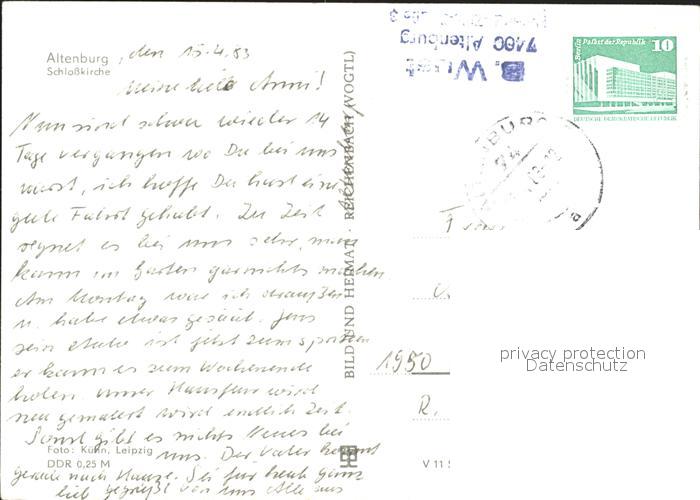 Altenburg
Schloßkirche
, den 15.4.83
Meine liebe Anni!
Nun sind schon wieder 14
Tage vergangen wo Du bei uns
warst, ich hoffe Du hast eine
gute Fahrt gehabt. Zur Zeit
regnet es bei uns sehr, man
kann im Garten garnichts machen
Am Montag war ich draußen
u. habe etwas gesäut. Jens
sein ist jetzt zum
er kann es zum Wochenende
holen. Unser Hausflur wird
neu gemalert wird endlich Zeit.
Sonst gibt es nichts Neues bei
uns. Der Vater kommt
gerade nach Hause. Sei für heute ganz
lieb gegrüßt von uns Alle aus
Foto: Kühn, Leipzig
DDR 0,25 M
BILD UND HEIMAT · REICHENBACH (VOGTL)
7400 Altenburg
Berlin Palast der Republik
10
DEUTSCHE DEMOKRATISCHE REPUBLIK
1950
R.
V 11
privacy protection
Datenschutz